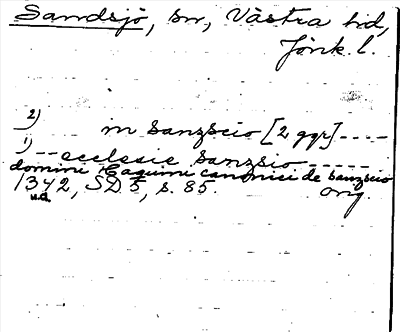 Sandsjö, sn, Västra hd,
Jönk. l.
2) m Sanzscio [2 ggr] ----
1) -- ecclesie Sanzsio -----
domini Haquini canonici de Sanzscio
1342, SD 5, s. 85. orig.
u.a.